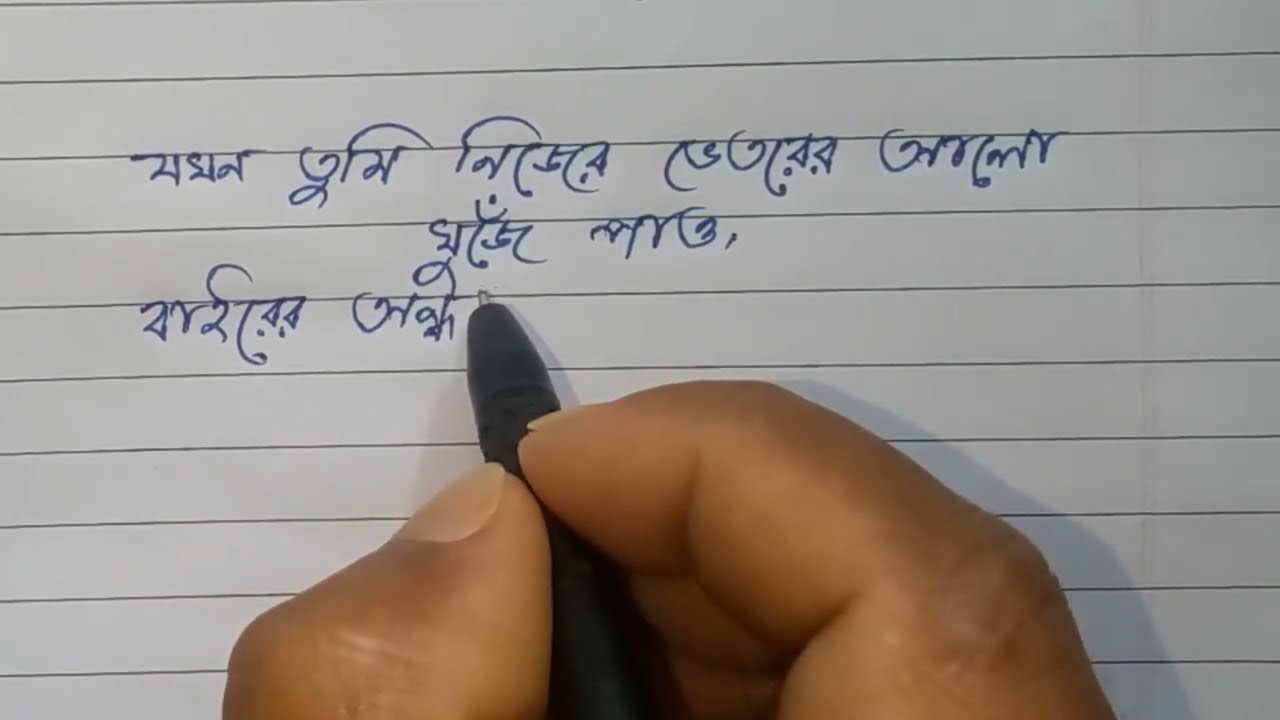 যখন তুমি নিজের ভেতরের আলো
খুঁজে পাও,
বাইরের অন্ধ